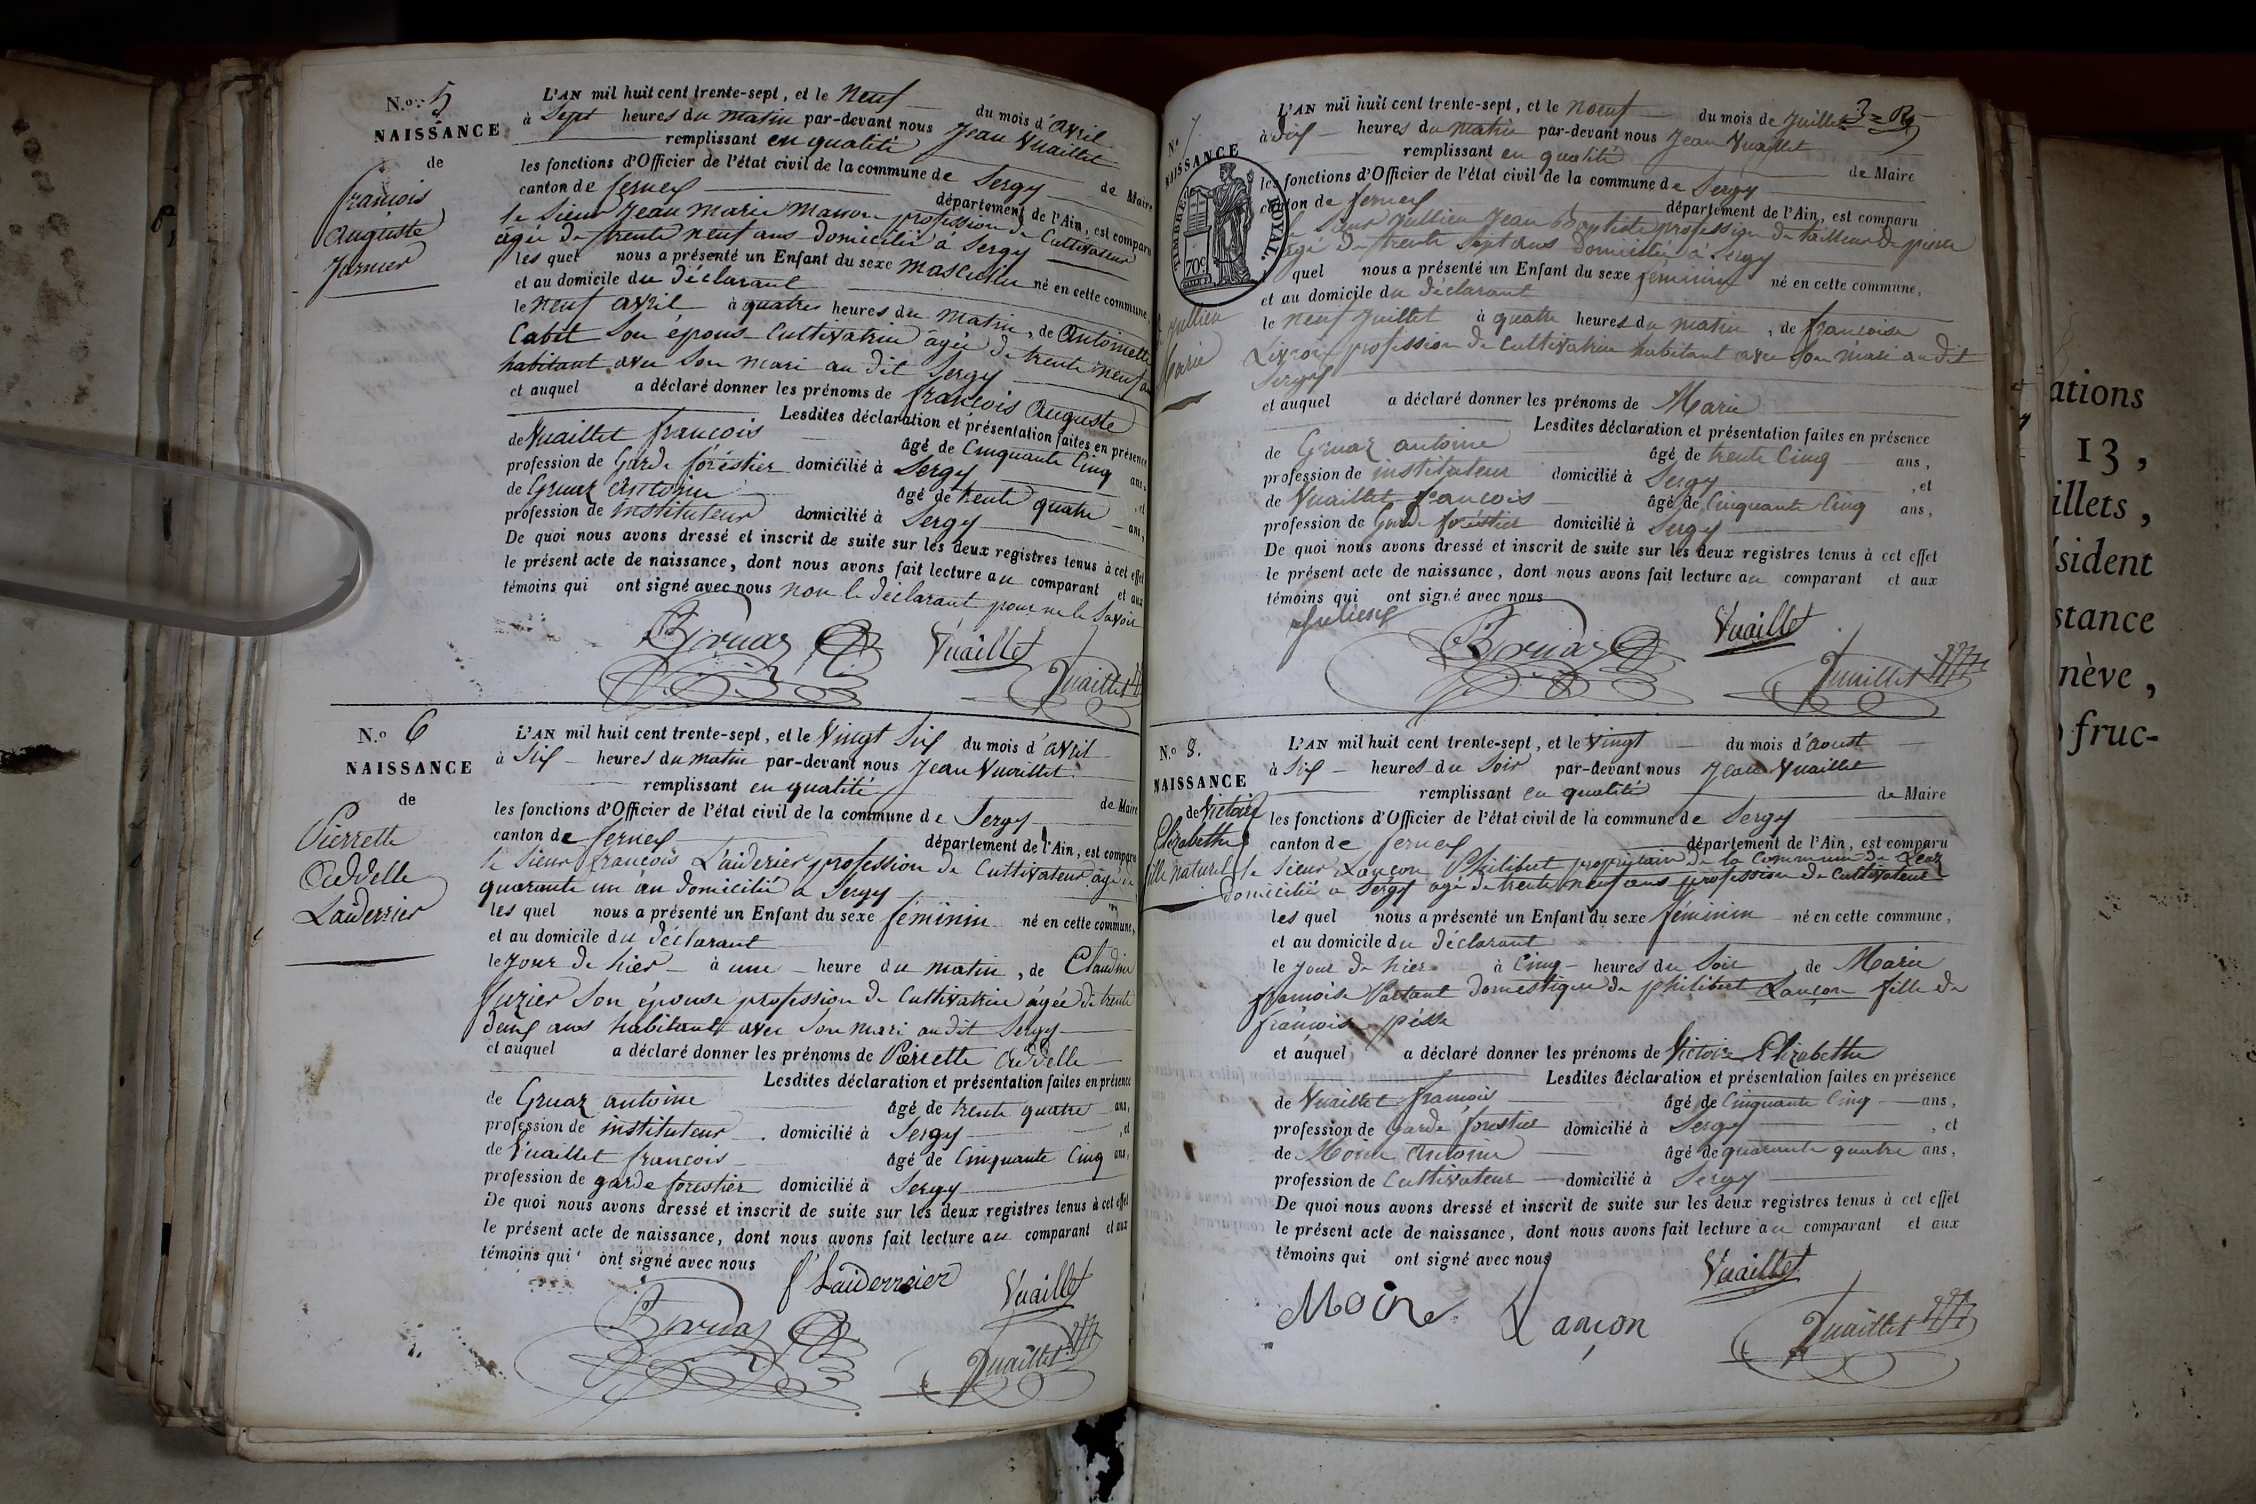 N.º 5
NAISSANCE
de
françois
Auguste
L'AN mil huit cent trente-sept, et le Neuf du mois d'avril
à Sept heures du matin par-devant nous Jean Vuaillet
remplissant en qualité de Maire
les fonctions d'Officier de l'état civil de la commune de Sergy
canton de ferney département de l'Ain, est comparu
le Sieur Jean Marie profession de Cultivateur
âgée de trente neuf ans domicilié à Sergy
les quel nous a présenté un Enfant du sexe masculin né en cette commune,
et au domicile du déclarant
le neuf avril à quatre heures du matin, de Antoinette
Cabet son épouse Cultivatrice âgée de trente neuf ans
habitant avec son mari au dit Sergy
et auquel a déclaré donner les prénoms de françois Auguste
Lesdites déclaration et présentation faites en présence
de Vuaillet françois âgé de Cinquante Cinq ans,
profession de Garde foréstier domicilié à Sergy, et
de Gruaz Antoine âgé de trente quatre ans,
profession de instituteur domicilié à Sergy
De quoi nous avons dressé et inscrit de suite sur les deux registres tenus à cet effet
le présent acte de naissance, dont nous avons fait lecture au comparant et aux
témoins qui ont signé avec nous non le déclarant pour ne le savoir
Gruaz Vuaillet
Vuaillet
N.º 6
NAISSANCE
de
Pierrette
Auddelle
Laiderrier
L'AN mil huit cent trente-sept, et le Vingt Six du mois d'avril
à Six heures du matin par-devant nous Jean Vuaillet
remplissant en qualité de Maire
les fonctions d'Officier de l'état civil de la commune de Sergy
canton de ferney département de l'Ain, est comparu
le Sieur françois Laiderier profession de Cultivateur âgé de
quarante un an domicilié a Sergy
les quel nous a présenté un Enfant du sexe féminin né en cette commune,
et au domicile du déclarant
le jour de hier à une heure du matin, de Claudine
fuzier son épouse profession de Cultivatrice âgée de trente
deux ans habitant avec son mari au dit Sergy
et auquel a déclaré donner les prénoms de Pierrette Auddelle
Lesdites déclaration et présentation faites en présence
de Gruaz antoine âgé de trente quatre ans,
profession de instituteur domicilié à Sergy, et
de Vuaillet françois âgé de Cinquante Cinq ans,
profession de garde forestier domicilié à Sergy
De quoi nous avons dressé et inscrit de suite sur les deux registres tenus à cet effet
le présent acte de naissance, dont nous avons fait lecture au comparant et aux
témoins qui ont signé avec nous
f Laiderrier Vuaillet
Gruaz Vuaillet
N.º 7
NAISSANCE
TIMBRE ROYAL.
70c
Jullien
Marie
L'AN mil huit cent trente-sept, et le neuf du mois de Juillet
à dix heures du matin par-devant nous Jean Vuaillet
remplissant en qualité de Maire
les fonctions d'Officier de l'état civil de la commune de Sergy
canton de ferney département de l'Ain, est comparu
le Sieur Jullien Jean Baptiste profession de tailleur de pierre
âgé de trente Sept ans domicilié à Sergy
quel nous a présenté un Enfant du sexe féminin né en cette commune,
et au domicile du déclarant
le neuf Juillet à quatre heures du matin, de françoise
Livroix profession de Cultivatrice habitant avec son mari au dit
Sergy
et auquel a déclaré donner les prénoms de Marie
Lesdites déclaration et présentation faites en présence
de Gruaz antoine âgé de trente Cinq ans,
profession de instituteur domicilié à Sergy, et
de Vuaillet françois âgé de Cinquante Cinq ans,
profession de Garde foréstier domicilié à Sergy
De quoi nous avons dressé et inscrit de suite sur les deux registres tenus à cet effet
le présent acte de naissance, dont nous avons fait lecture au comparant et aux
témoins qui ont signé avec nous
Gruaz Vuaillet
Vuaillet
N.º 8.
NAISSANCE
de Victoire
Elizabethe
fille naturel
L'AN mil huit cent trente-sept, et le vingt du mois d'aoust
à Six heures du Soir par-devant nous Jean Vuaillet
remplissant en qualité de Maire
les fonctions d'Officier de l'état civil de la commune de Sergy
canton de ferney département de l'Ain, est comparu
le Sieur Lançon Philibert propriétaire de la Commune de Leaz
domicilié a Sergy agé de trente neuf ans profession de Cultivateur
les quel nous a présenté un Enfant du sexe féminin né en cette commune,
et au domicile du déclarant
le jour de hier à Cinq heures du Soir, de Marie
françoise domestique de philibert Lançon fille de
françoise
et auquel a déclaré donner les prénoms de Victoire Elizabethe
Lesdites déclaration et présentation faites en présence
de Vuaillet françois âgé de Cinquante Cinq ans,
profession de Garde forestier domicilié à Sergy, et
de Moine Antoine âgé de quarante quatre ans,
profession de Cultivateur domicilié à Sergy
De quoi nous avons dressé et inscrit de suite sur les deux registres tenus à cet effet
le présent acte de naissance, dont nous avons fait lecture au comparant et aux
témoins qui ont signé avec nous
Vuaillet
Moine Lançon
Vuaillet
ations
13,
illets,
sident
stance
nève,
fruc-